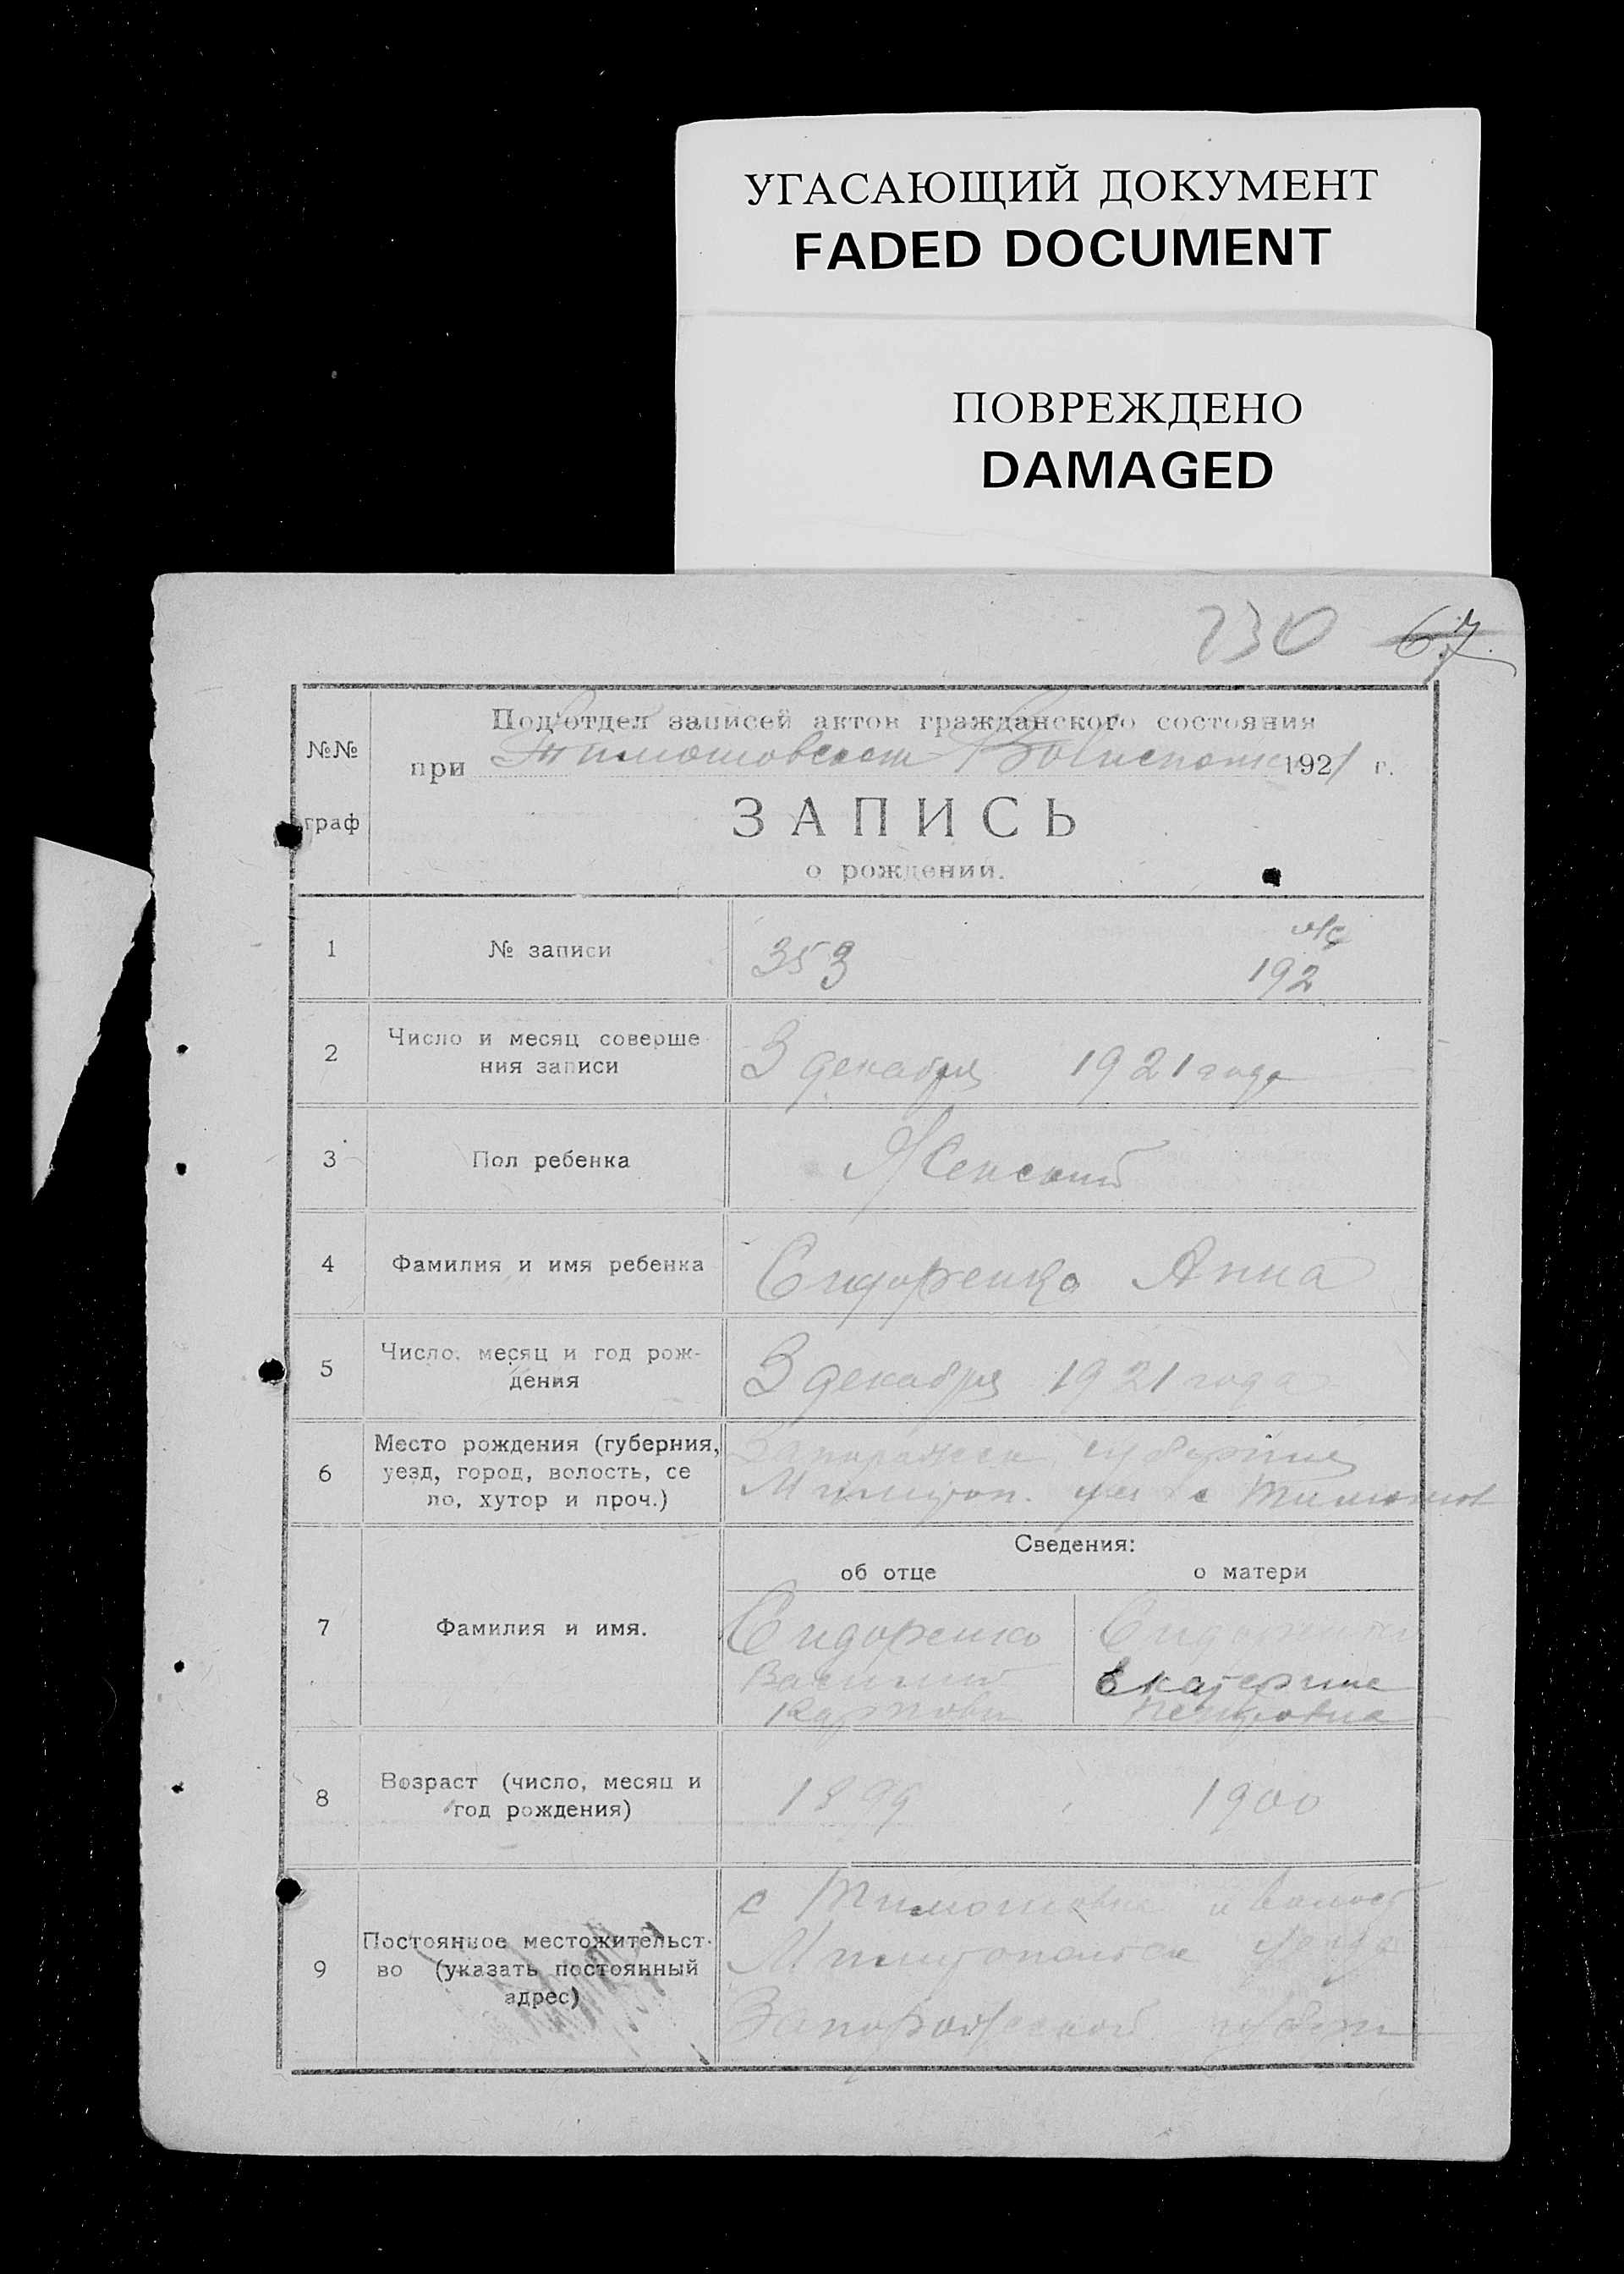 УГАСАЮЩИЙ ДОКУМЕНТ
FADED DOCUMENT
ПОВРЕЖДЕНО
DAMAGED
230 67
№№ граф
Под'отдел записей актов гражданского состояния
при Тимошовском Волисполк 1921 г.
ЗАПИСЬ
о рождении.
1 № записи 353
192
2 Число и месяц соверше
ния записи 3 декабря 1921 года
3 Пол ребенка Женский
4 Фамилия и имя ребенка Сидоренко Анна
5 Число, месяц и год рож-
дения 3 декабря 1921 года
6 Место рождения (губерния,
уезд, город, волость, се
ло, хутор и проч.)
Запорожск губернии
Мелитоп. уез с Тимошов
Сведения:
об отце о матери
7 Фамилия и имя.
Сидоренко Сидоренко
Василий Екатерина
Карпович Петровна
8 Возраст (число, месяц и
год рождения) 1899 1900
9 Постоянное местожительст-
во (указать постоянный
адрес)
с Тимошовка и волост
Мелитопольск уезда
Запорожской губерн